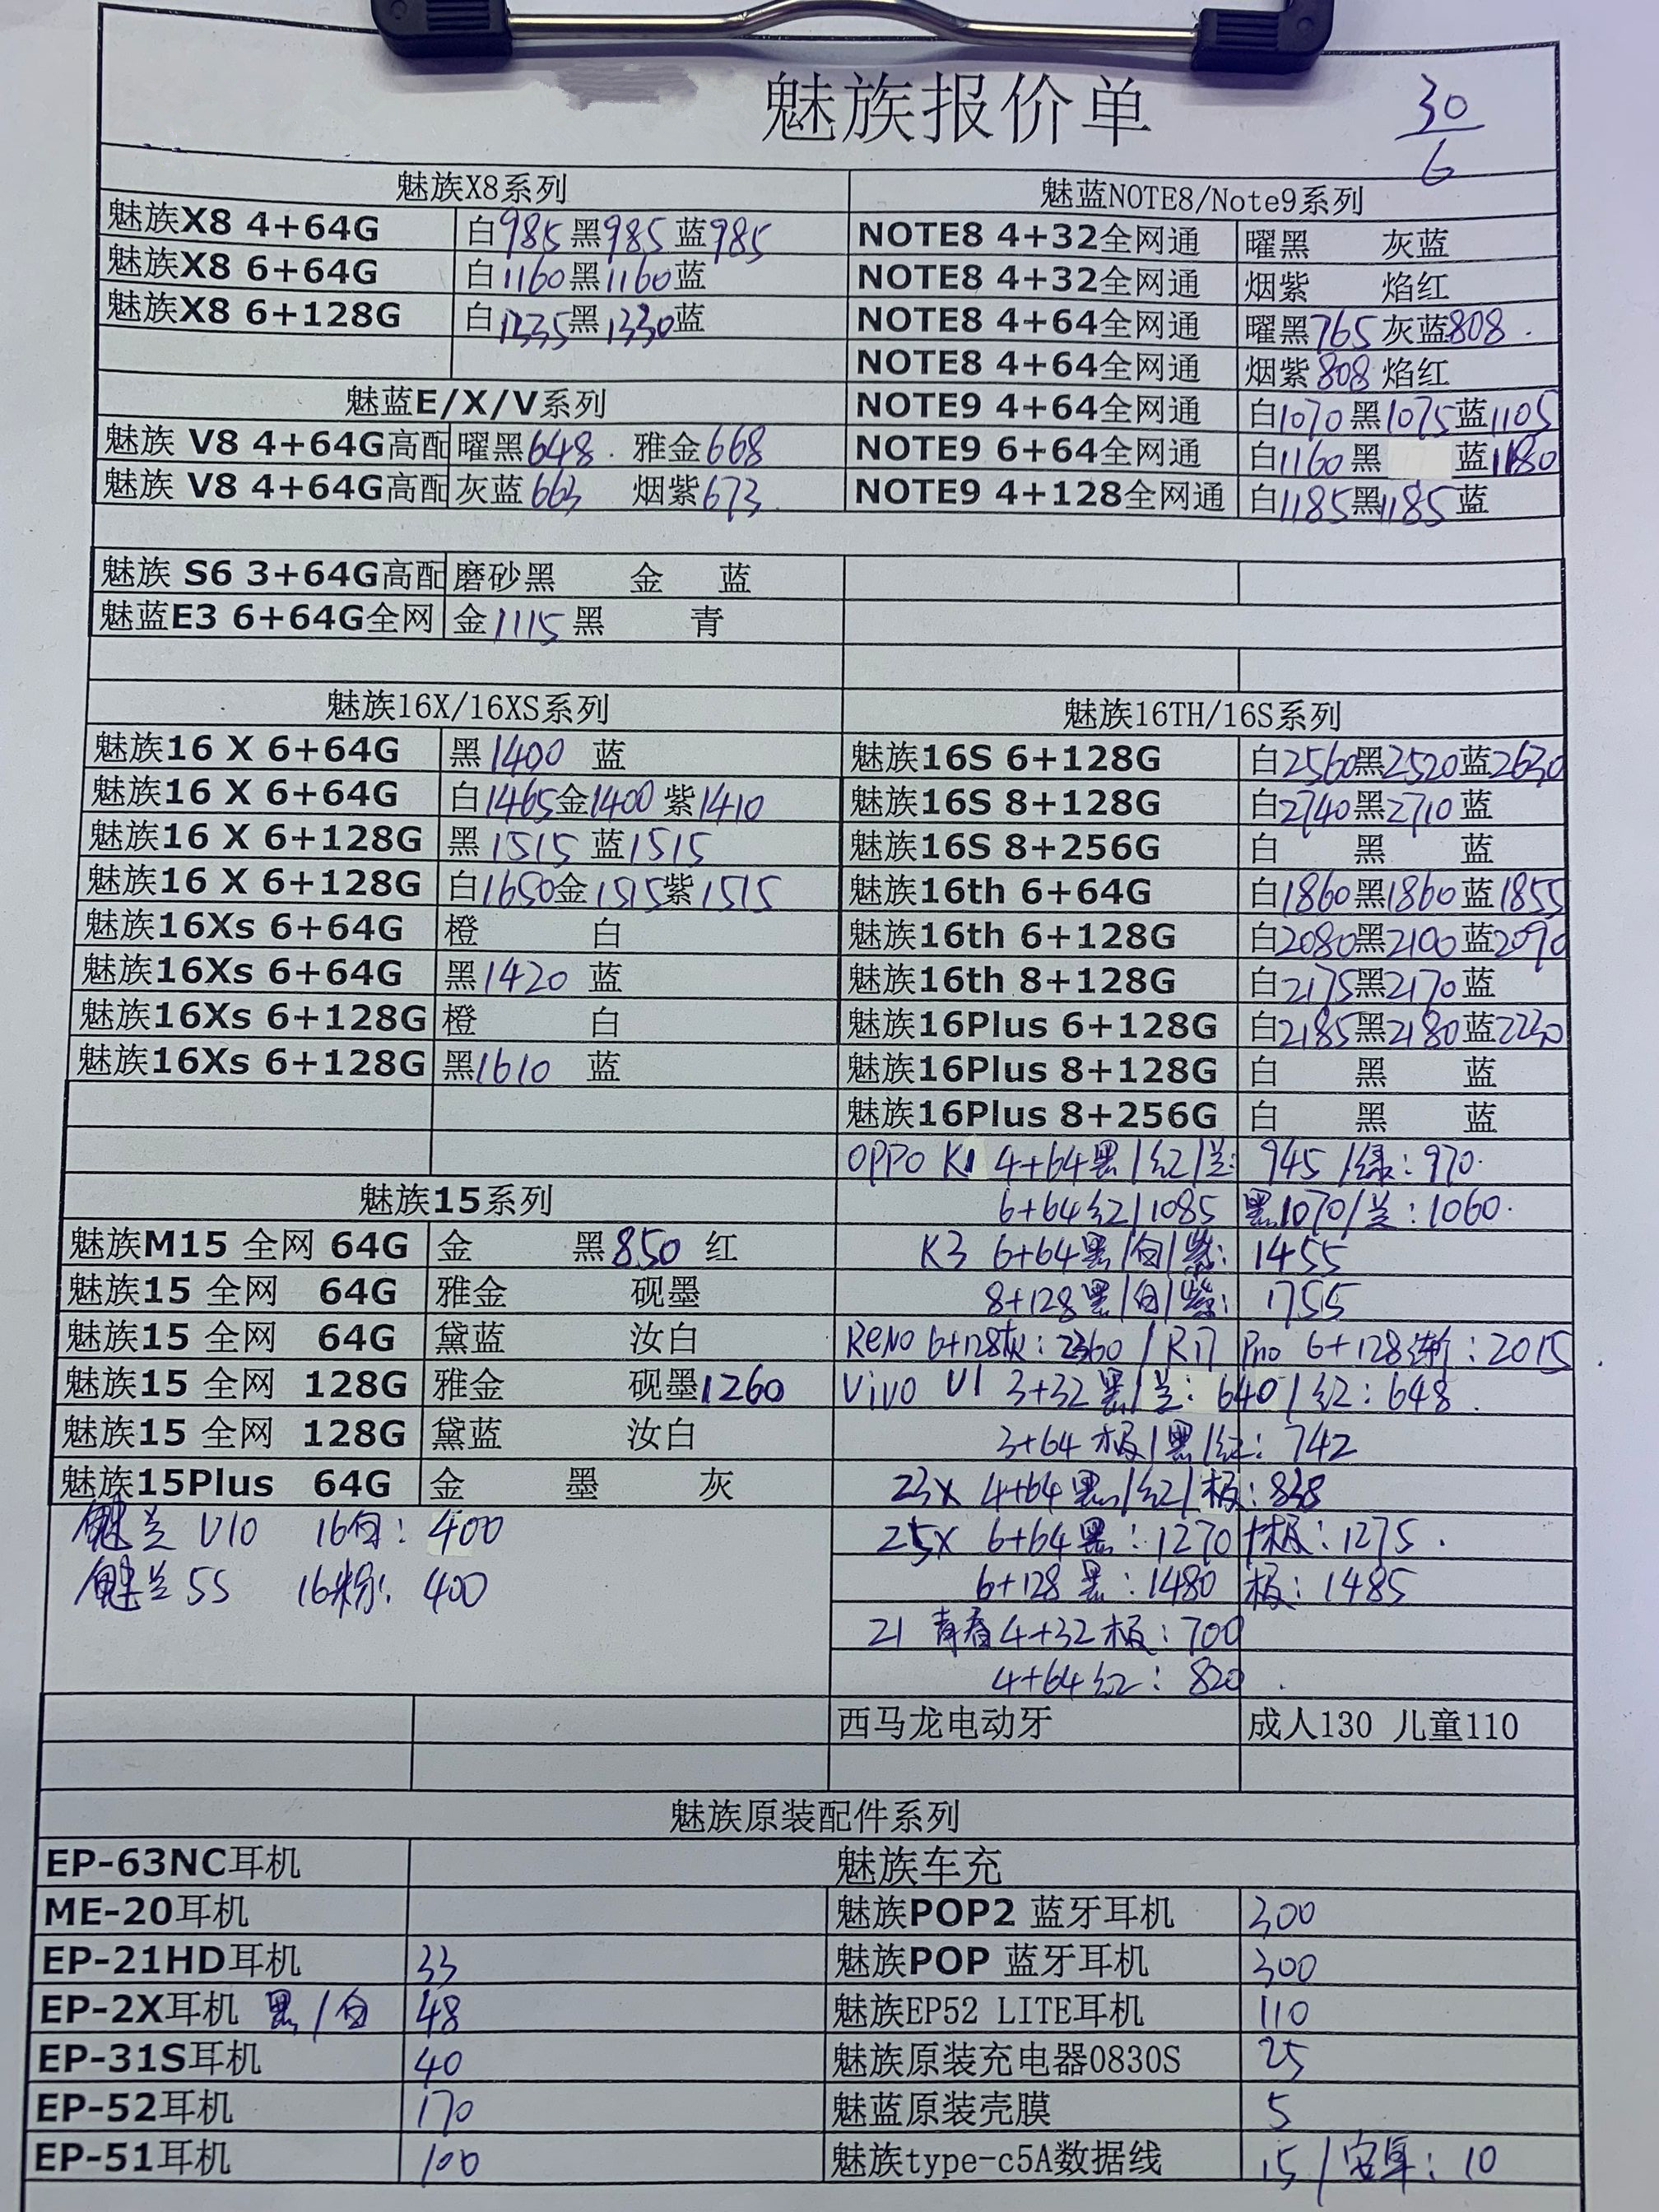 魅族报价单
30/6
魅族X8系列
魅族X8 4+64G 白985 黑985 蓝985
魅族X8 6+64G 白1160 黑1160 蓝
魅族X8 6+128G 白1335 黑1330 蓝
魅蓝E/X/V系列
魅族 V8 4+64G高配 曜黑648. 雅金668
魅族 V8 4+64G高配 灰蓝663 烟紫673
魅族 S6 3+64G高配 磨砂黑 金 蓝
魅蓝E3 6+64G全网 金1115 黑 青
魅蓝NOTE8/Note9系列
NOTE8 4+32全网通 曜黑 灰蓝
NOTE8 4+32全网通 烟紫 焰红
NOTE8 4+64全网通 曜黑765 灰蓝808.
NOTE8 4+64全网通 烟紫808 焰红
NOTE9 4+64全网通 白1070 黑1075 蓝1105
NOTE9 6+64全网通 白1160 黑 蓝1180
NOTE9 4+128全网通 白1185 黑1185 蓝
魅族16X/16XS系列
魅族16 X 6+64G 黑1400 蓝
魅族16 X 6+64G 白1465 金1400 紫1410
魅族16 X 6+128G 黑1515 蓝1515
魅族16 X 6+128G 白1650 金1515 紫1515
魅族16Xs 6+64G 橙 白
魅族16Xs 6+64G 黑1420 蓝
魅族16Xs 6+128G 橙 白
魅族16Xs 6+128G 黑1610 蓝
魅族16TH/16S系列
魅族16S 6+128G 白2560 黑2520 蓝2630
魅族16S 8+128G 白2740 黑2710 蓝
魅族16S 8+256G 白 黑 蓝
魅族16th 6+64G 白1860 黑1860 蓝1855
魅族16th 6+128G 白2080 黑2100 蓝2090
魅族16th 8+128G 白2175 黑2170 蓝
魅族16Plus 6+128G 白2185 黑2180 蓝2220
魅族16Plus 8+128G 白 黑 蓝
魅族16Plus 8+256G 白 黑 蓝
魅族15系列
魅族M15 全网 64G 金 黑850 红
魅族15 全网 64G 雅金 砚墨
魅族15 全网 64G 黛蓝 汝白
魅族15 全网 128G 雅金 砚墨1260
魅族15 全网 128G 黛蓝 汝白
魅族15Plus 64G 金 墨 灰
魅兰 V10 16白: 400
魅兰5S 16粉: 400
OPPO K1 4+64黑/红/兰: 945 /绿: 970.
6+64红/1085 黑1070/兰: 1060.
K3 6+64黑/白/紫: 1455
8+128黑/白/紫: 1755
ReNO 6+128灰: 2360 / R17 Pro 6+128渐: 2015
ViVO U1 3+32黑/兰: 640/红: 648.
3+64 极/黑/红: 742
Z3X 4+64黑/红/极: 838
Z5X 6+64黑: 1270 极: 1275.
6+128黑: 1480 极: 1485
Z1 青春4+32极: 700
4+64红: 820.
西马龙电动牙 成人130 儿童110
魅族原装配件系列
EP-63NC耳机 魅族车充
ME-20耳机 魅族POP2 蓝牙耳机 300
EP-21HD耳机 33 魅族POP 蓝牙耳机 300
EP-2X耳机 黑/白 48 魅族EP52 LITE耳机 110
EP-31S耳机 40 魅族原装充电器0830S 25
EP-52耳机 170 魅蓝原装壳膜 5
EP-51耳机 100 魅族type-c5A数据线 15/安卓: 10